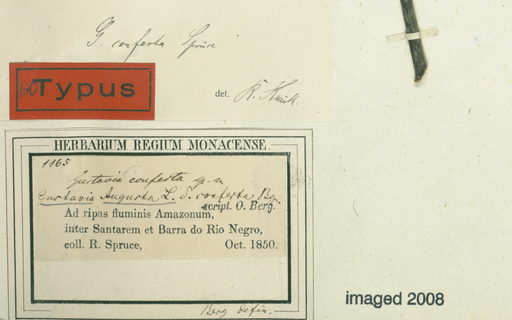 G. conferta Spruce
Typus
det. R. Knuth.
HERBARIUM REGIUM MONACENSE.
1165
Gustavia conferta sp. n
Gustavia Augusta L. S. conferta Bg.
script. O. Berg.
Ad ripas fluminis Amazonum,
inter Santarem et Barra do Rio Negro,
coll. R. Spruce, Oct. 1850.
Berg defin.
imaged 2008